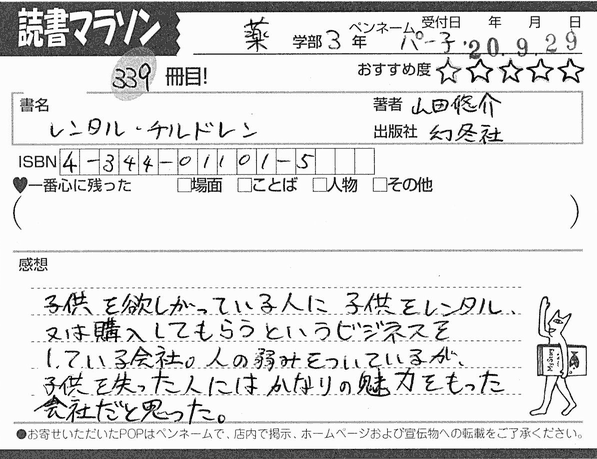 読書マラソン
薬 学部 3 年 ペンネーム パー子 受付日 年 月 日
'20.9.29
339 冊目! おすすめ度 ☆☆☆☆☆
書名 レンタル・チルドレン
著者 山田悠介
出版社 幻冬社
ISBN 4-344-01101-5
♥一番心に残った □場面 □ことば □人物 □その他
( )
感想
子供を欲しがっている人に 子供をレンタル、
又は購入してもらうというビジネスを
している会社。人の弱みをついているが、
子供を失った人にはかなりの魅力をもった
会社だと思った。
●お寄せいただいたPOPはペンネームで、店内で掲示、ホームページおよび宣伝物への転載をご了承ください。